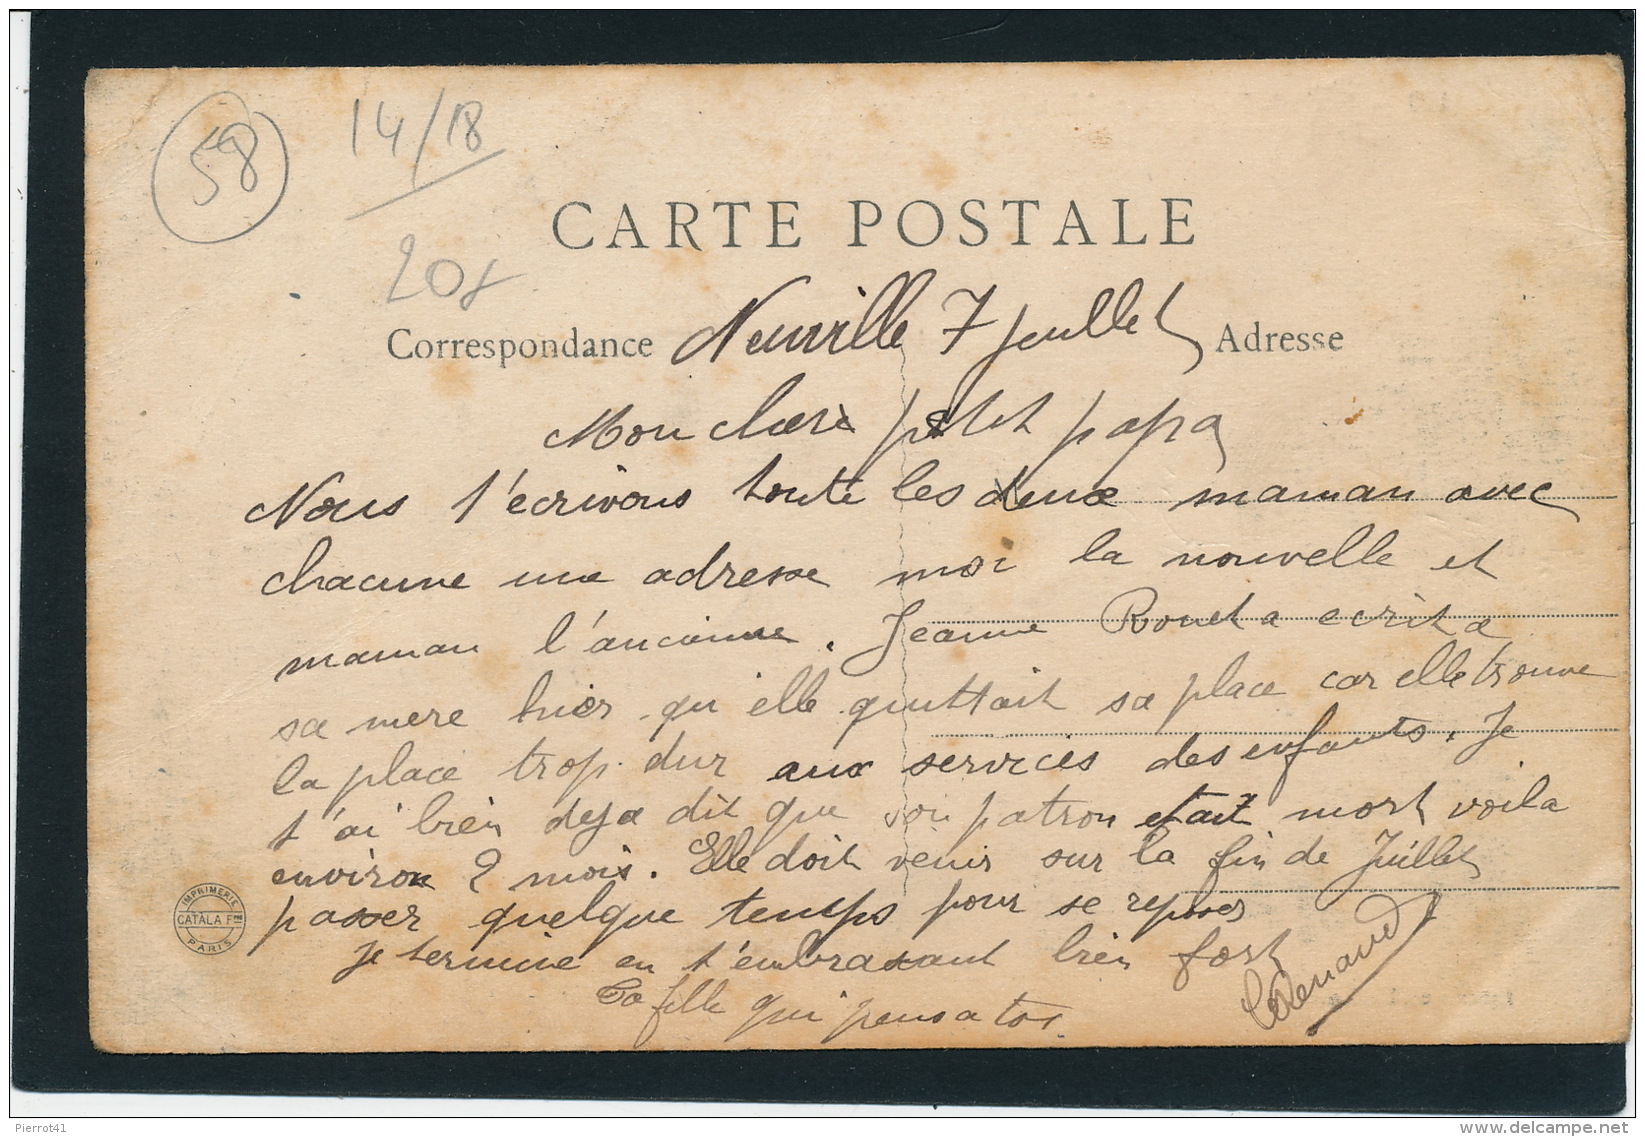 58
14/18
20f
CARTE POSTALE
Correspondance Neuville 7 juillet Adresse
Mon chere petit papa
Nous t'écrivons toute les deux maman avec
chacune une adresse moi la nouvelle et
maman l'ancienne. Jeanne Rouet a ecrit a
sa mere hier qu'elle quittait sa place car elle trouve
la place trop dur aux services des enfants. Je
t'ai bien deja dit que son patron etait mort voila
environ 2 mois. Elle doit venir sur la fin de Juillet
passer quelque temps pour se reposer
Je termine en t'embrassant bien fort
Ta fille qui pensa toi.
Renaud
IMPRIMERIE CATALA FRES PARIS
Pierrot41
delcampe.net